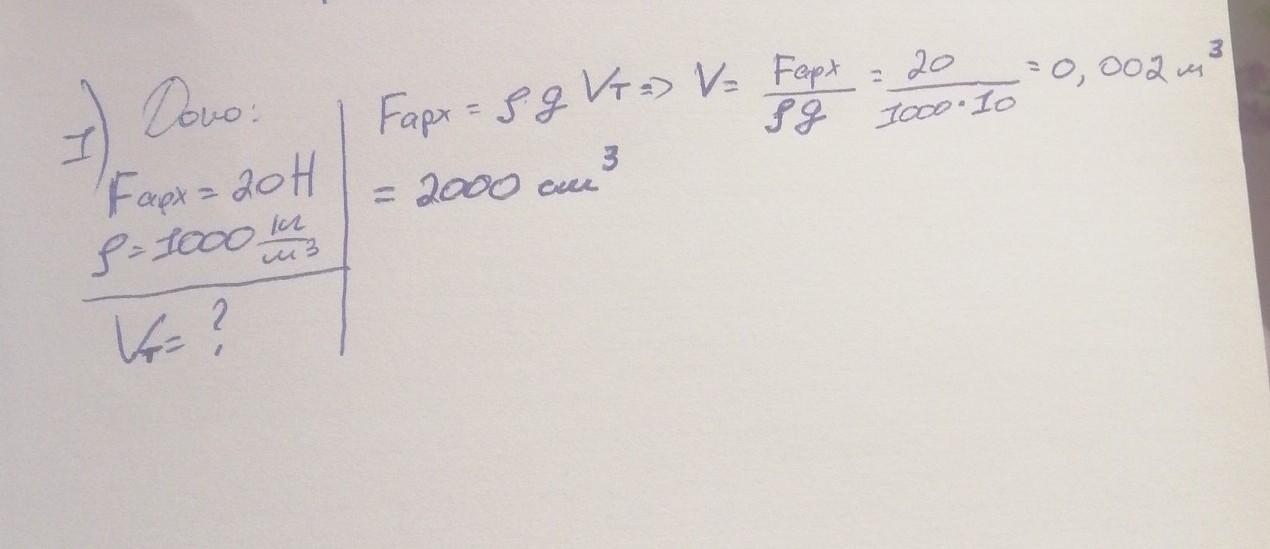 1) Дано:
Fарх = 20Н
ρ = 1000 кг/м³
Vт = ?
Fарх = ρ g Vт => V = Fарх/ρg = 20/1000·10 = 0,002 м³
= 2000 см³